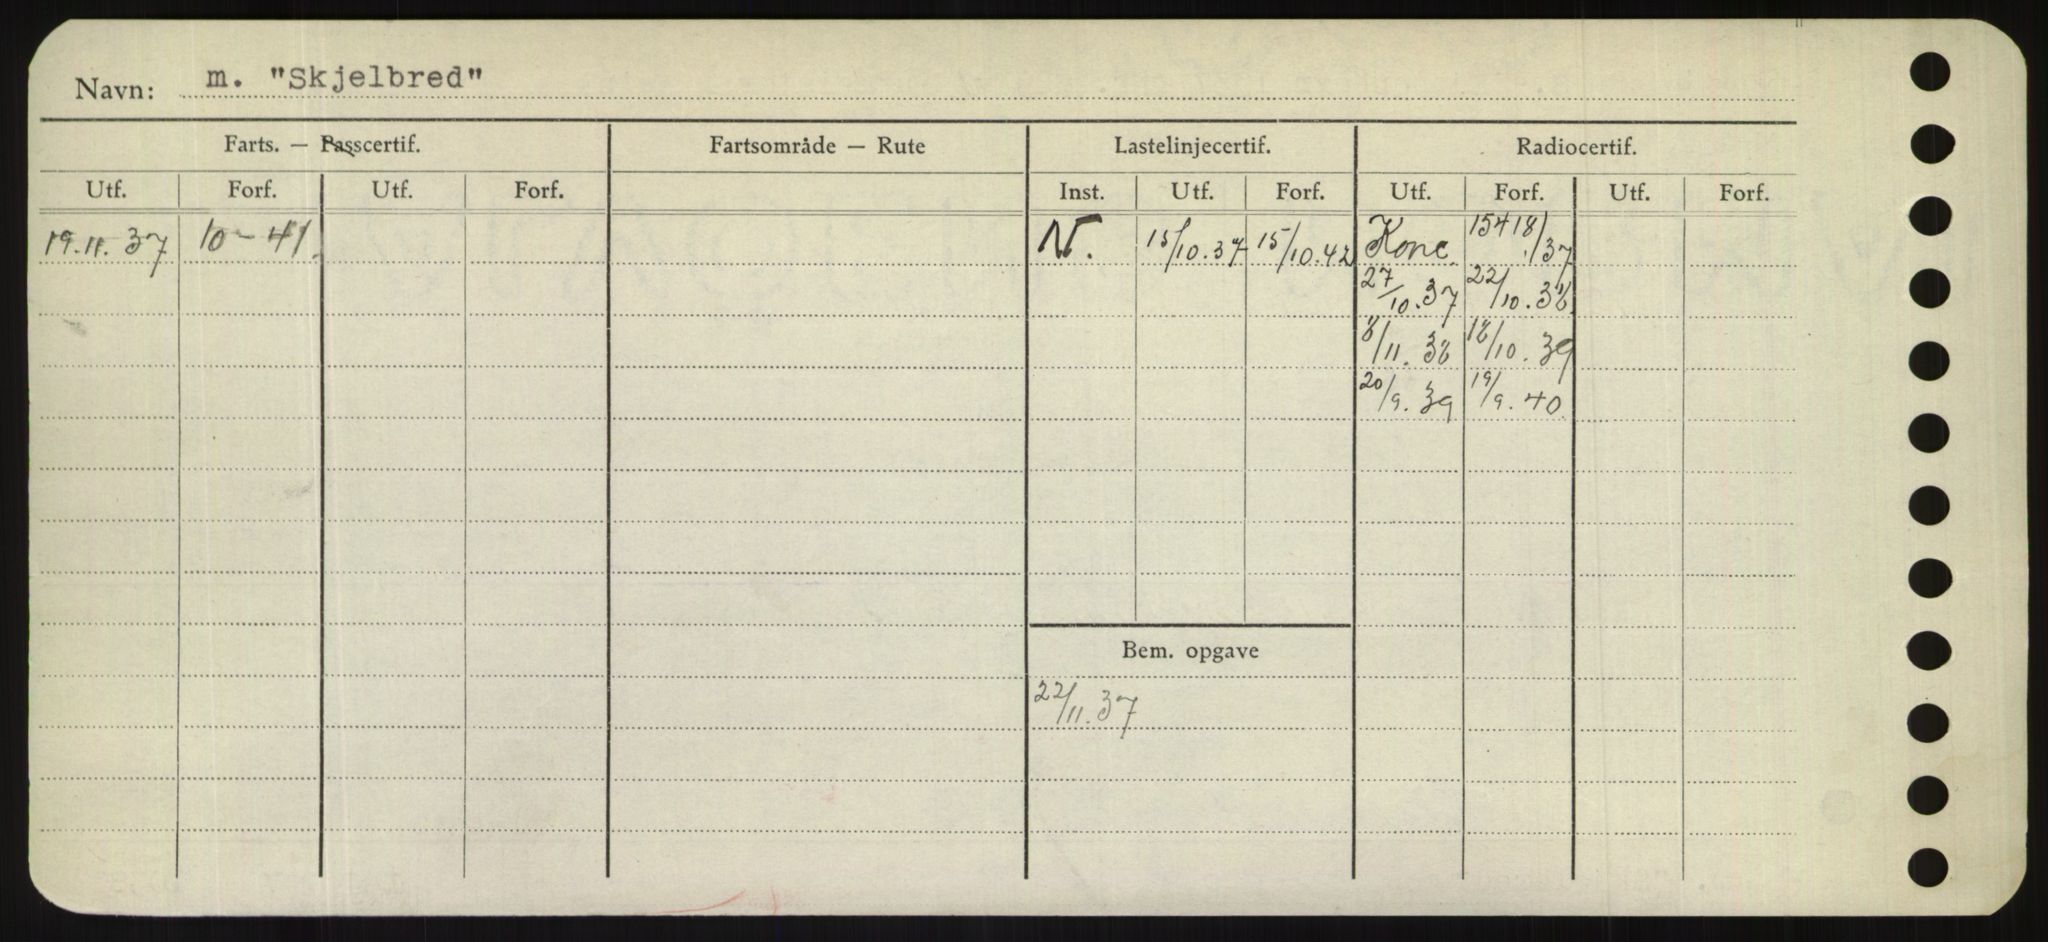 Navn: m. "Skjelbred"
Farts. — Passcertif. Fartsområde — Rute Lastelinjecertif. Radiocertif.
Utf. Forf. Utf. Forf. Inst. Utf. Forf. Utf. Forf. Utf. Forf.
19.11.37 10-41. N. 15/10.37 15/10.42 Konc. 15418/37
27/10.37 22/10.38
8/11.38 18/10.39
20/9.39 19/9.40
Bem. opgave
22/11.37